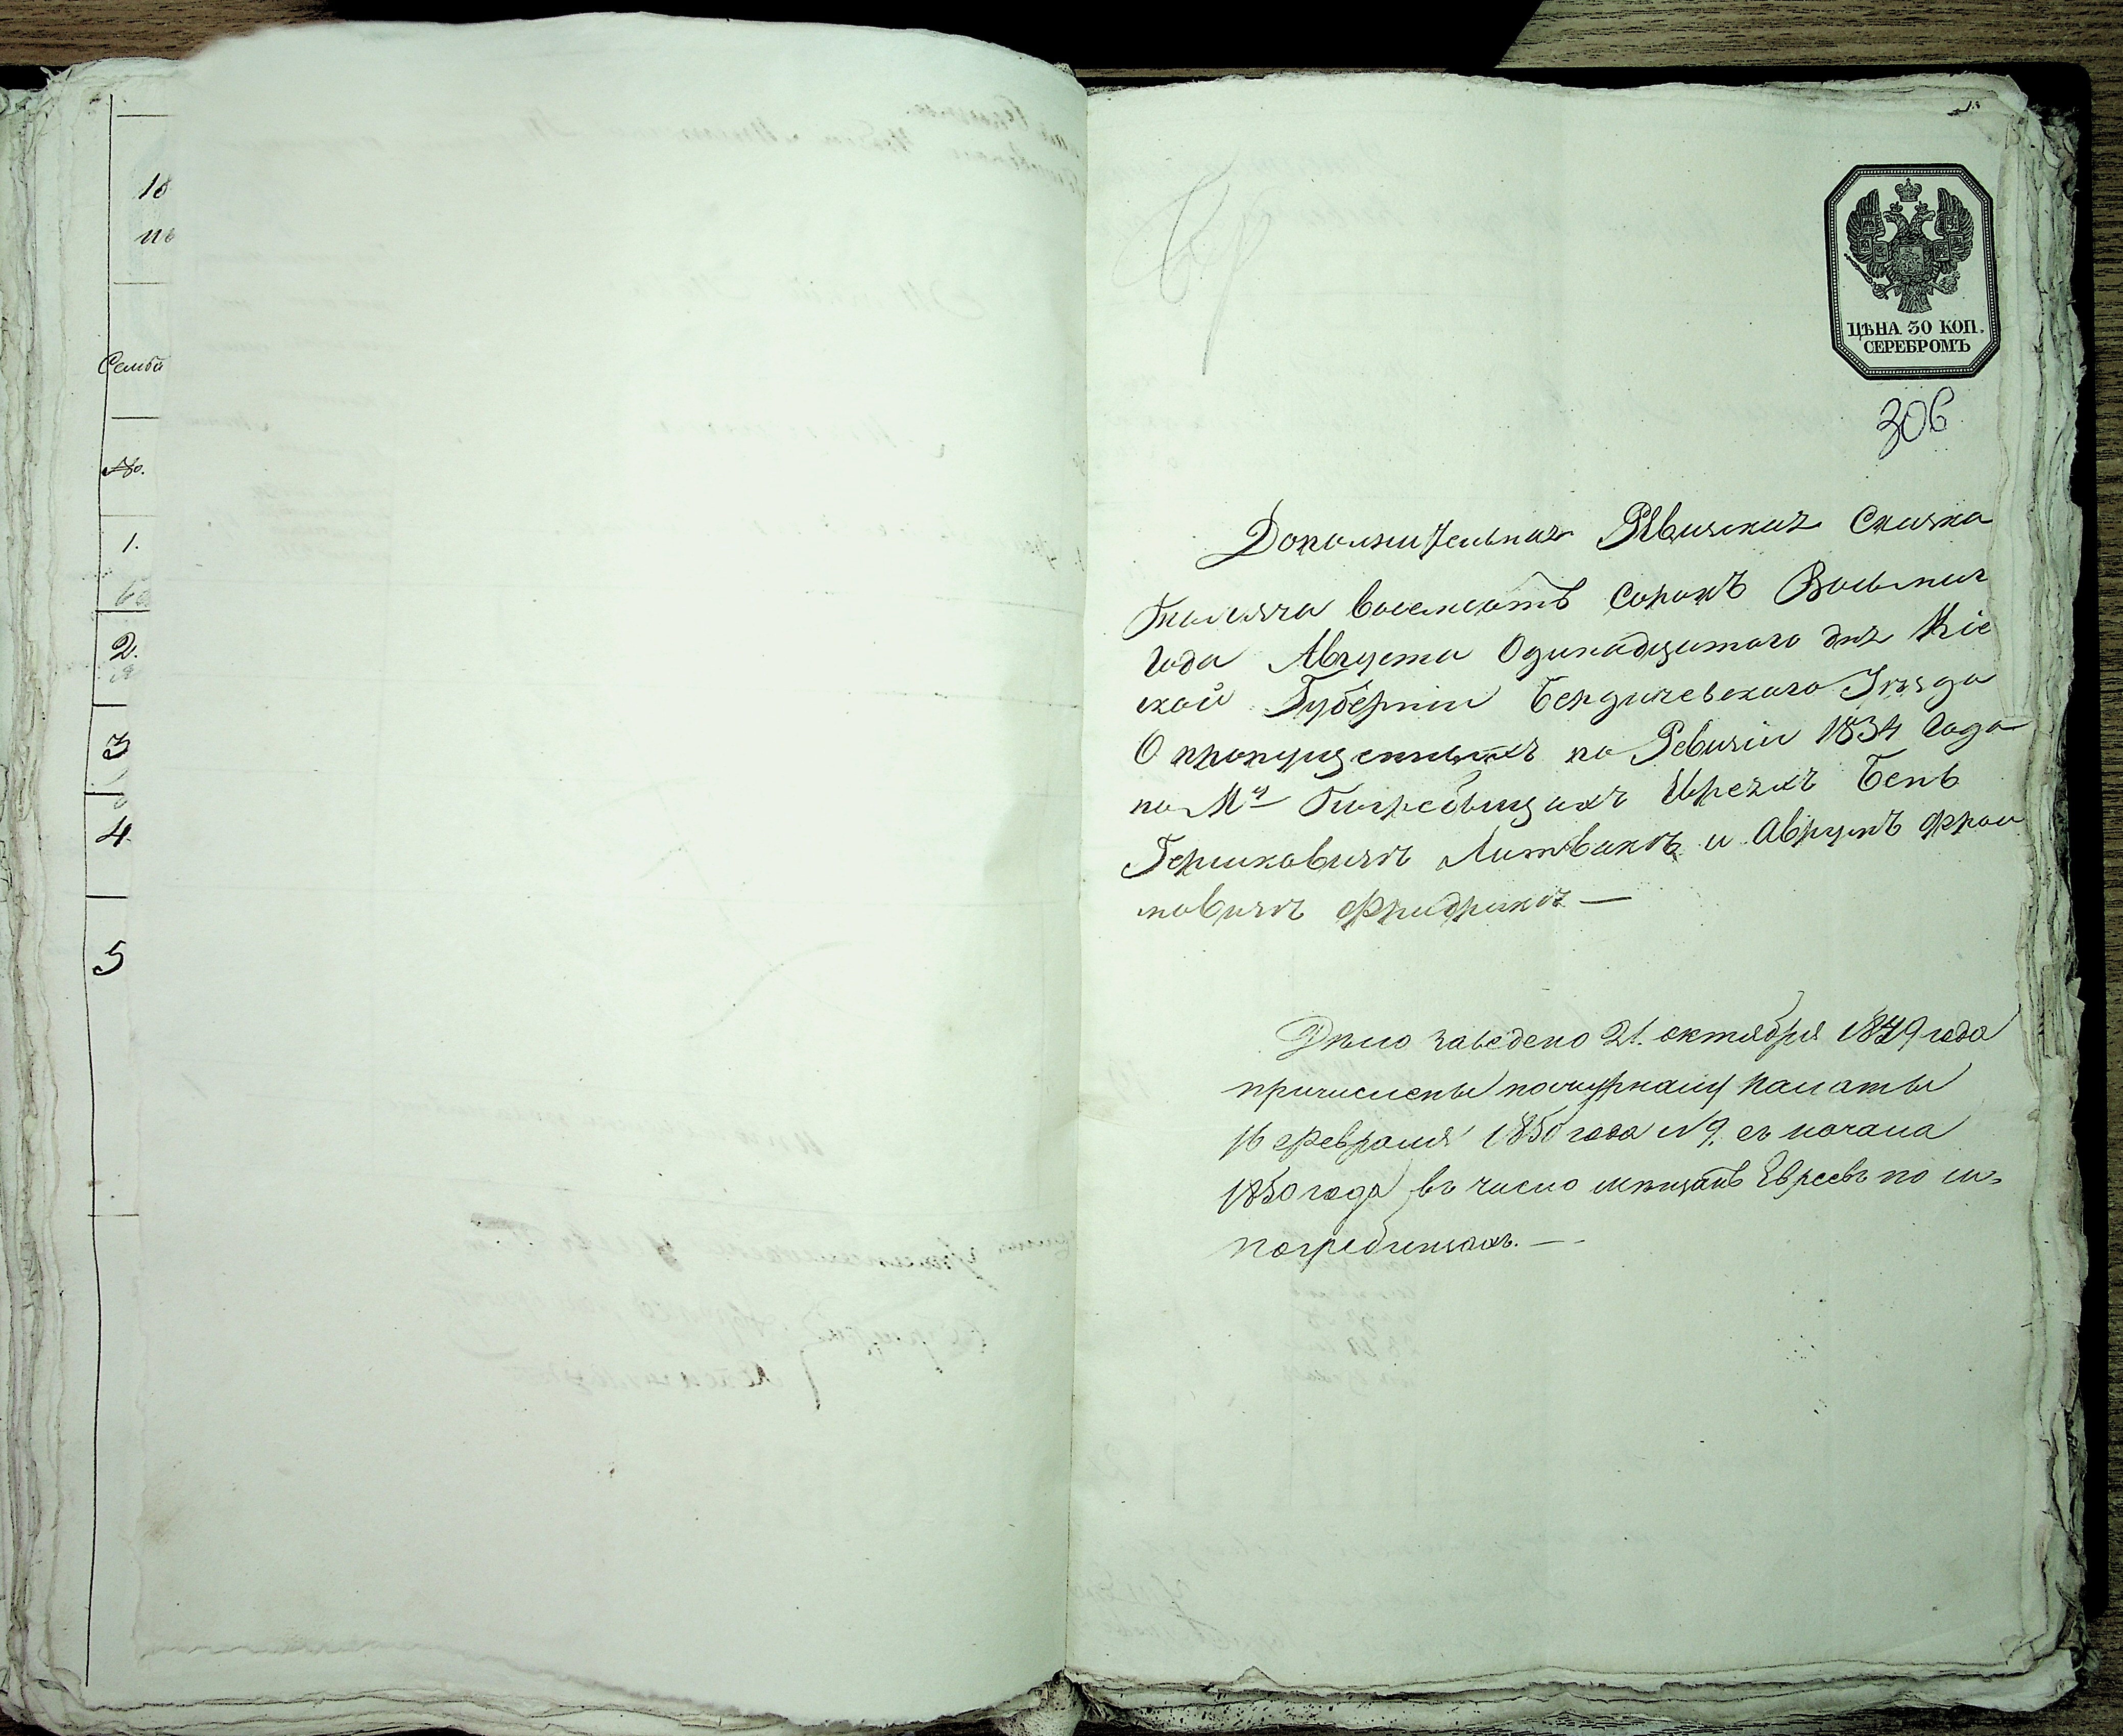 10
Семья
№.
1.
2.
3
4.
5
ЦѢНА 30 КОП.
СЕРЕБРОМЪ
306
Дополнительная Ревизская Сказка
Тысяча восемсотъ сорокъ Восьмаго
Года Августа Одинадцатаго дня Кіев
ской Губерніи Бердичевскаго Уѣзда
О пропущенныхъ по Ревизіи 1834 Года
по Мч Погребыщахъ Евреяхъ Бень
Гершковичъ Литвакъ и Аврумъ Фрои
мовичъ Фридрихъ —
Дѣло заведено 21. октября 1849 года
причислены по палаты
16 февраля 1850 года №9. съ начала
1850 года въ число мѣщанъ Евреевъ по м.
Погребищахъ. —